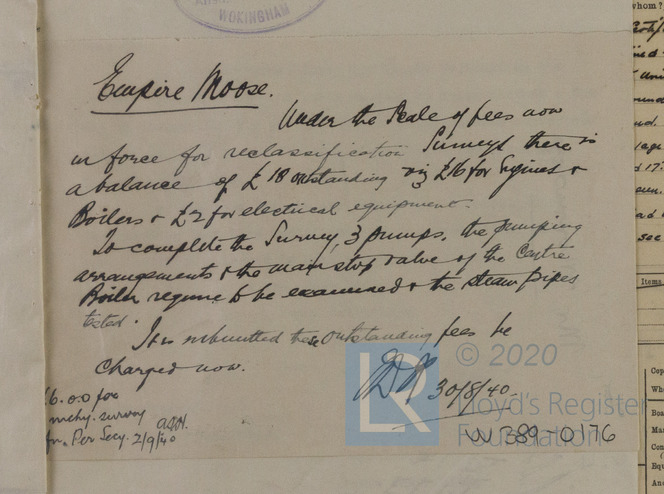 WOKINGHAM
Empire Moose.
Under the Scale of fees now
in force for reclassification Surveys there is
a balance of £18 outstanding viz £16 for Engines &
Boilers & £2 for electrical equipment.
To complete the Survey, 3 pumps, the pumping
arrangements & the main stop valve of the Centre
Boiler require to be examined & the steam pipes
tested.
It is submitted these outstanding fees be
charged now.
30/8/40
6.0.0 for
mchy. survey
for. Per Secy. 2/9/40
© 2020
LR
Lloyd's Register
Foundation
W389-0176
whom?
Items